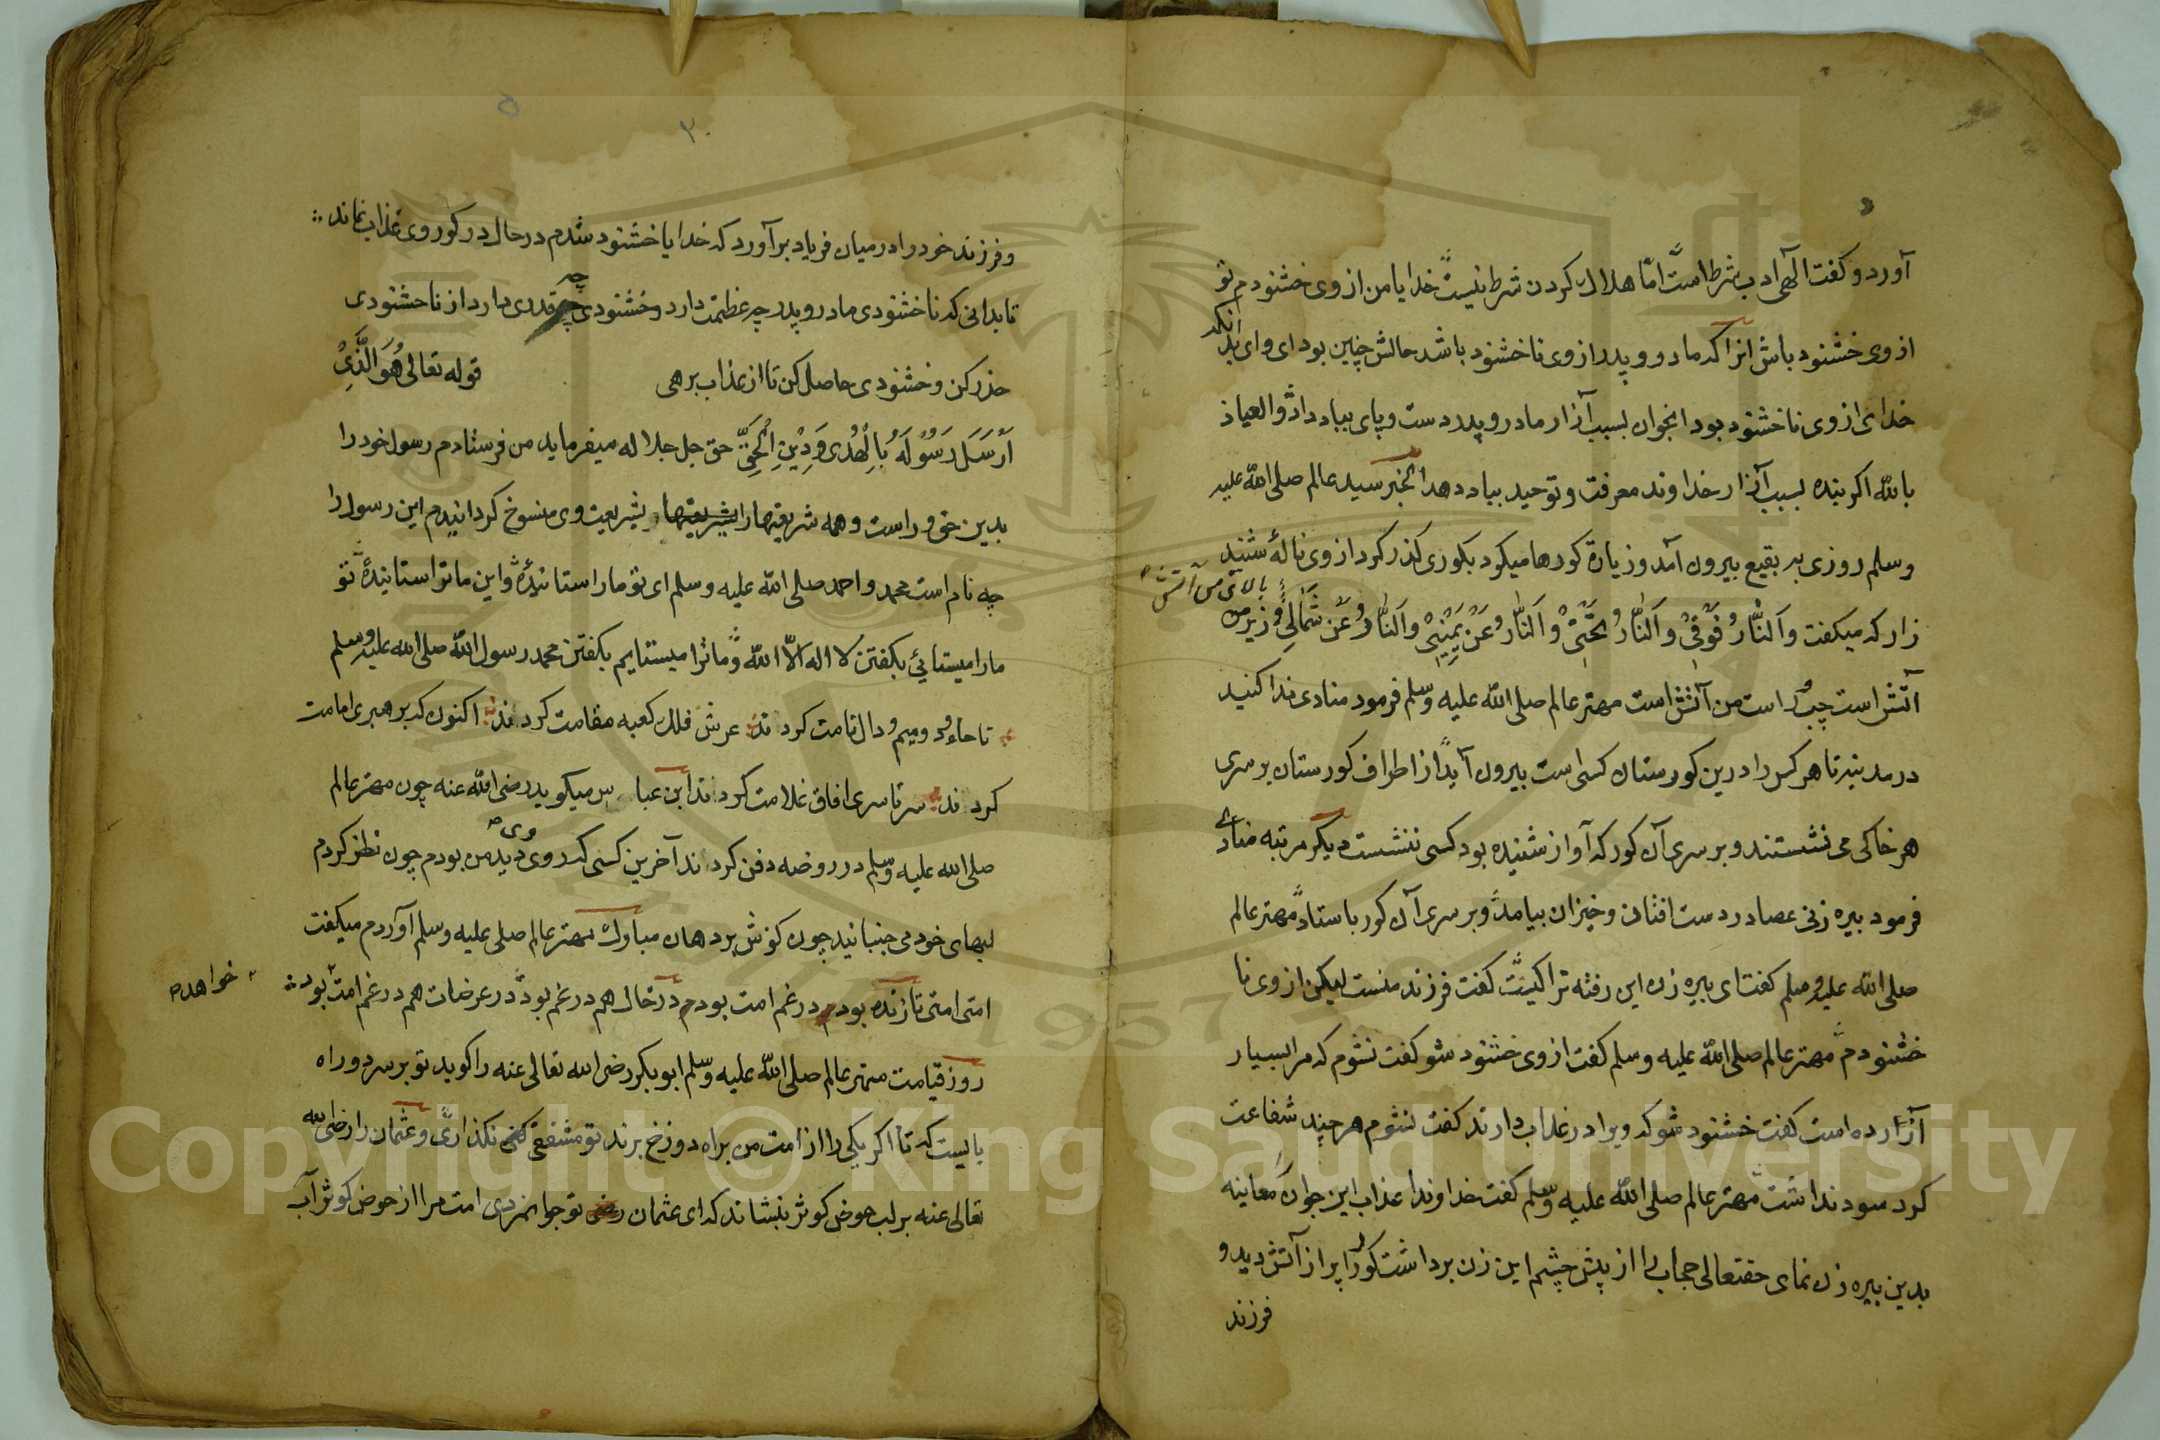 آورد و گفت الهی ادب شرط است اما هلاک کردن شرط نیست خدایا من از وی خشنودم تو
از وی خشنود باش انرا که مادر و پدر از وی ناخشنود باشد حالش چنین بود ای وای بر انکه
خدای از وی ناخشنود بود انجوان بسبب آزار مادر و پدر دست و پای بباد داد والعیاذ
بالله اکر بنده بسبب آزار خداوند معرفت و توحید بباد دهد الخبر سید عالم صلی الله علیه
وسلم روزی به بقیع بیرون آمد و زیارة کورها میکرد بکوری کذر کرد از وی نالۀ شنید
زار که میکفت والنار فوقی والنار تحتی والنار عن یمینی والنار عن شمالی و زیر من
بالای من آتش
آتش است چپ و راست من آتش است مهتر عالم صلی الله علیه وسلم فرمود منادی ندا کنید
در مدینه تا هر کس را درین کورستان کسی است بیرون آید از اطراف کورستان بر سری
هر خاکی می نشستند و بر سری آن کور که آواز شنیده بود کسی ننشست دیکر مرتبه منادی
فرمود پیره زنی عصا در دست افتان و خیزان بیامد و بر سری آن کور باستاد مهتر عالم
صلی الله علیه وسلم کفت ای پیره زن این رفته ترا کیست کفت فرزند منست لیکن از وی نا
خشنودم مهتر عالم صلی الله علیه وسلم کفت از وی خشنود شو کفت نشوم که مرا بسیار
آزارده است کفت خشنود شو که ویرا در عذاب دارند کفت نشوم هر چند شفاعت
کرد سود نداشت مهتر عالم صلی الله علیه وسلم کفت خداوندا عذاب این جوان معاینه
بدین پیره زن نمای حقتعالی حجاب را از پیش چشم این زن برداشت کور را پر از آتش دید و
فرزند
۲۰
و فرزند خود را در میان فریاد برآورد که خدایا خشنود شدم در حال در کور وی عذاب نماند
تا بدانی که ناخشنودی مادر و پدر چه عظمت دارد و خشنودی چه قدری دارد از ناخشنودی
حذر کن و خشنودی حاصل کن تا از عذاب برهی قوله تعالی هُوَ الَّذِیْ
اَرْسَلَ رَسُوْلَهُ بِالْهُدٰی وَدِیْنِ الْحَقِّ حق جل جلاله میفرماید من فرستادم رسول خود را
بدین حق و راست و همه شریعتها را بشریعتها بشریعت وی منسوخ کردانیدم این رسول را
چه نام است محمد و احمد صلی الله علیه وسلم ای تو ما را ستایندۀ و این ما ترا ستایندۀ تو
ما را میستایی بکفتن لا اله الا الله و ما ترا میستایم بکفتن محمد رسول الله صلی الله علیه وسلم
تا حاء و میم و دال قامت کردند عرش فلک کعبه مقامت کردند اکنون که برهبری امامت
کردند سرتاسری افاق غلامت کردند ابن عباس میکوید رضی الله عنه چون مهتر عالم
صلی الله علیه وسلم در روضه دفن کردند آخرین کسی که روی وی دید من بودم چون نظر کردم
لبهای خود می جنبانید چون کوش بر دهان مبارک مهتر عالم صلی علیه وسلم آوردم میکفت
امتی امتی تا زنده بودم در غم امت بودم در خاک هم در غم بود در عرضات هم در غم امت بود
خواهد
روز قیامت مهتر عالم صلی الله علیه وسلم ابوبکر رضی الله تعالی عنه را کوید تو بر سر دو راه
بایست که تا اکر یکی را از امت من براه دوزخ برند تو مشفقی نکذاری و عثمان را رضی الله
تعالی عنه بر لب حوض کوثر بنشاند که ای عثمان تو جوانمردی امت مرا از حوض کوثر آب